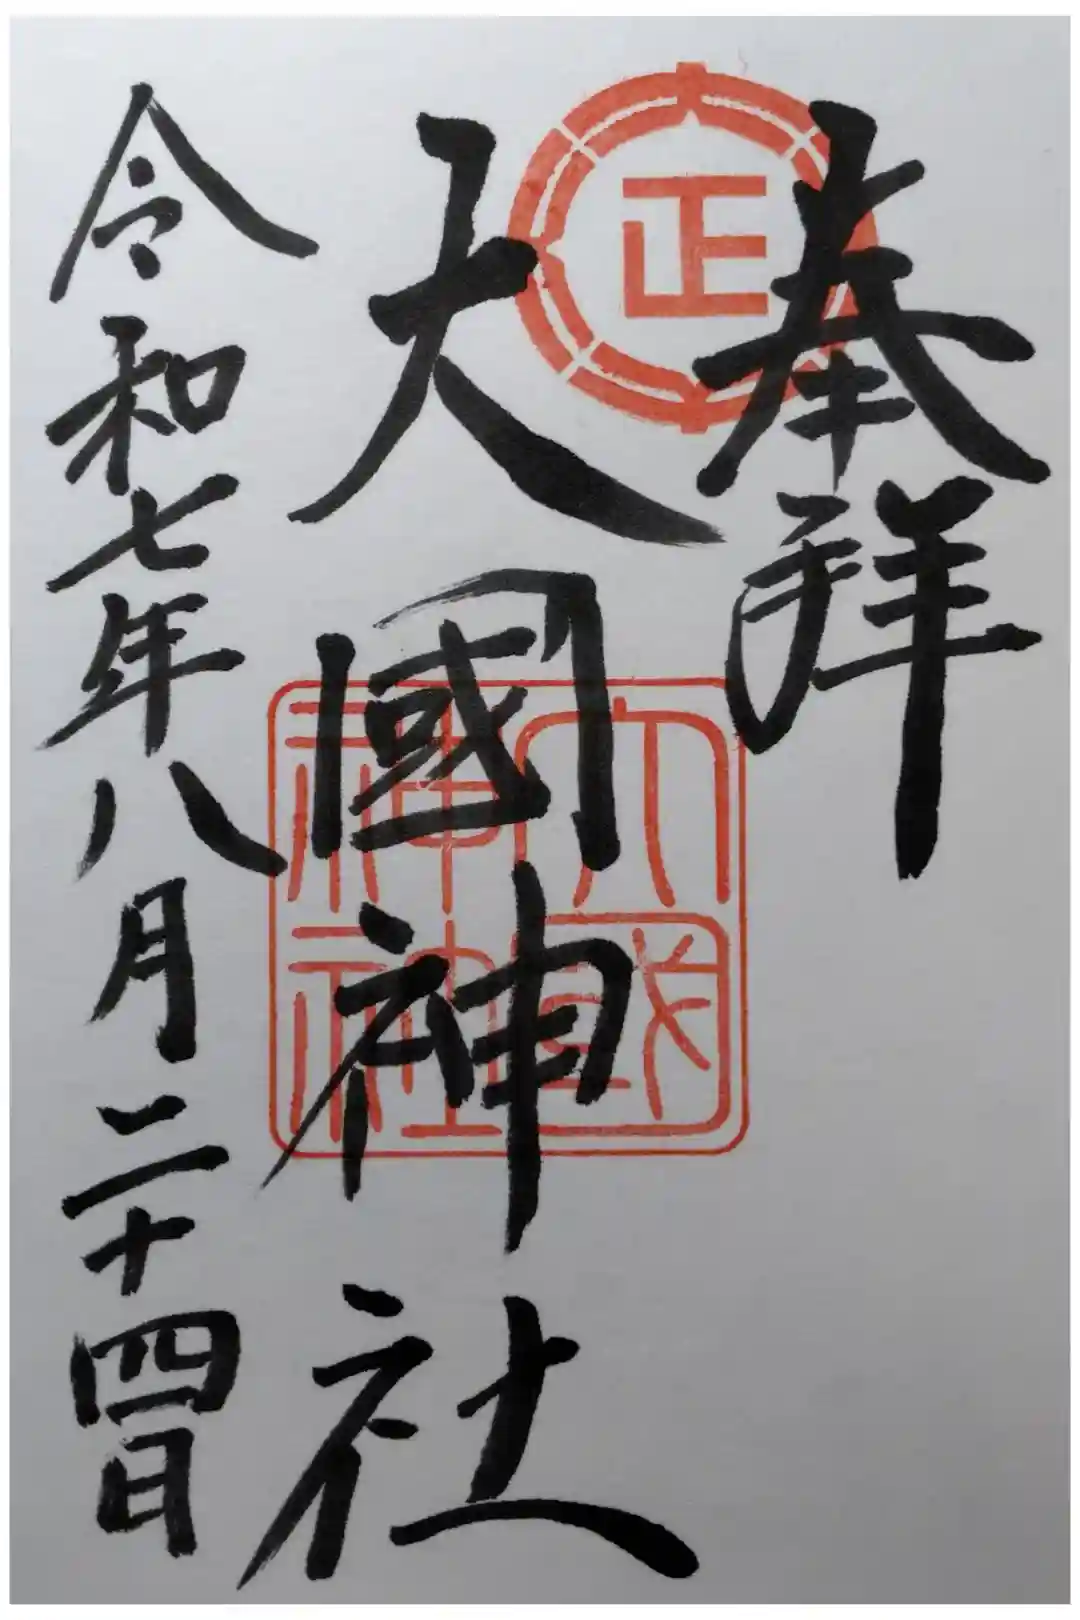 奉拜
正
大國神社
大國
神社
令和七年八月二十四日